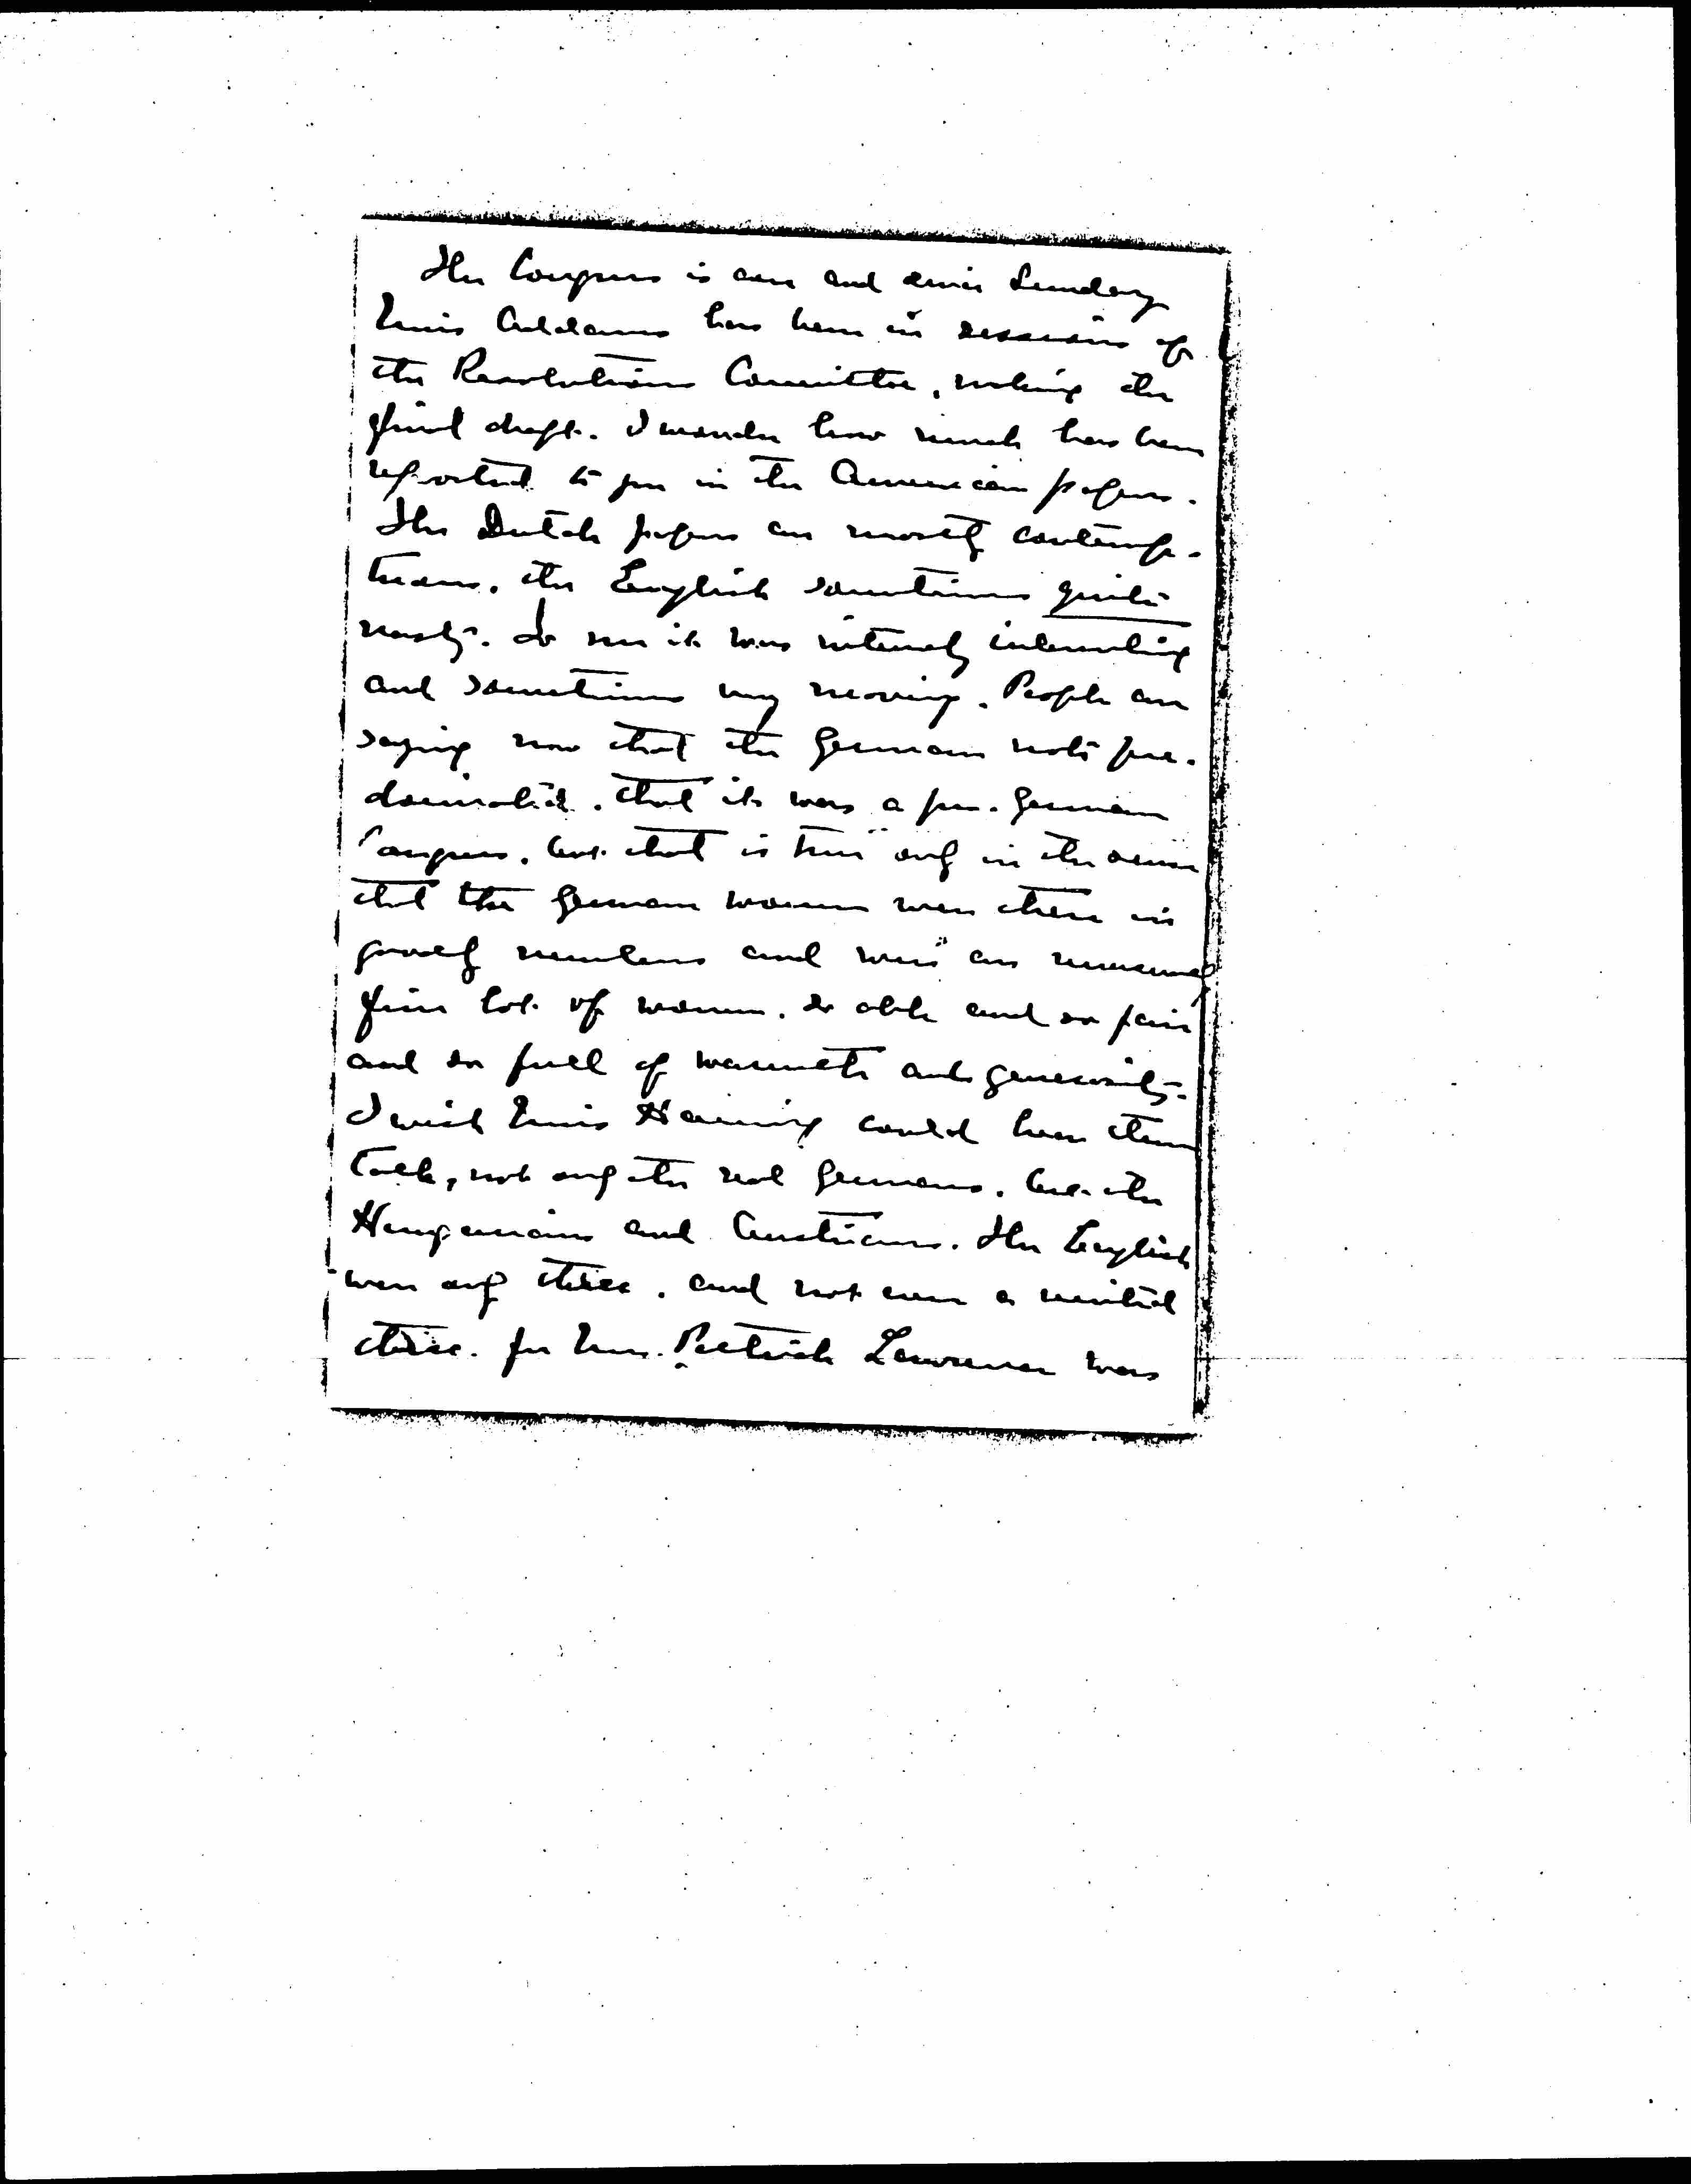 The Congress is over and since Sunday
Miss Addams has been in sessions of
the Resolutions Committee, making the
final draft. I wonder how much has been
reported to you in the American papers.
The Dutch papers are mostly contemp-
tuous, the English sometimes quite
nasty. To me it was intensely interesting
and sometimes very moving. People are
saying now that the German note pre-
dominated, that it was a pro-German
Congress, but that is true only in the sense
that the German women were there in
goodly numbers and were an unusually
fine lot of women, so able and so fair
and so full of warmth and generosity.
I wish Miss Haring could hear them
talk, not only the real Germans, but the
Hungarians and Austrians. The English
were only three, and not even a united
three, for Mrs. Pethick Lawrence was